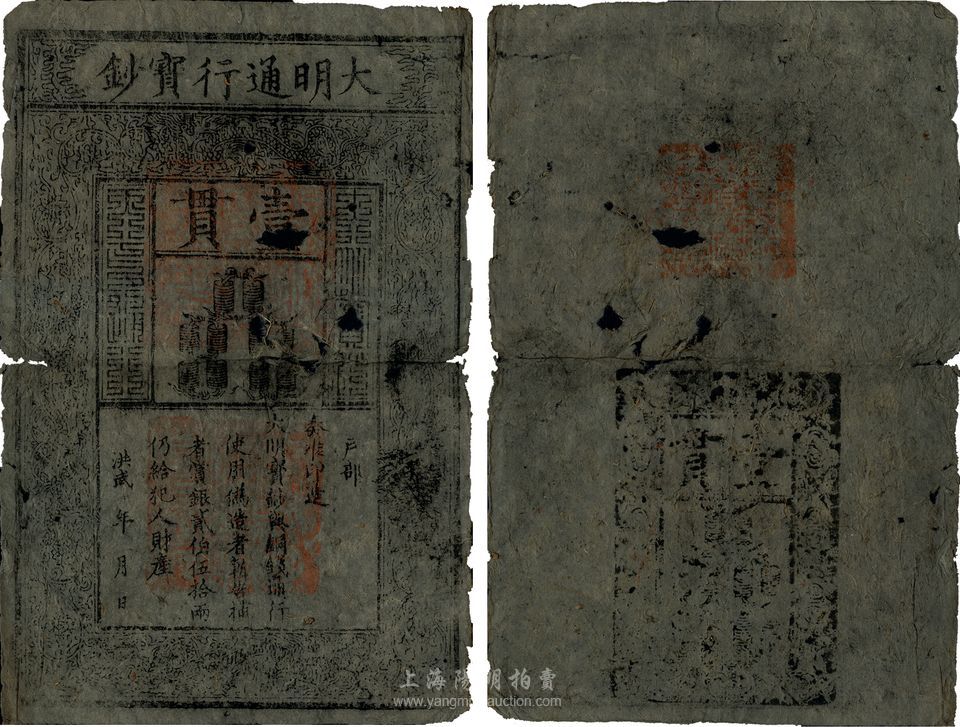 大明通行寶鈔
壹貫
戶部
奏准印造
大明寶鈔與銅錢通行
使用僞造者斬告捕
者賞銀貳伯伍拾兩
仍給犯人財產
洪武 年 月 日
壹貫
上海陽明拍賣
www.yangmingauction.com